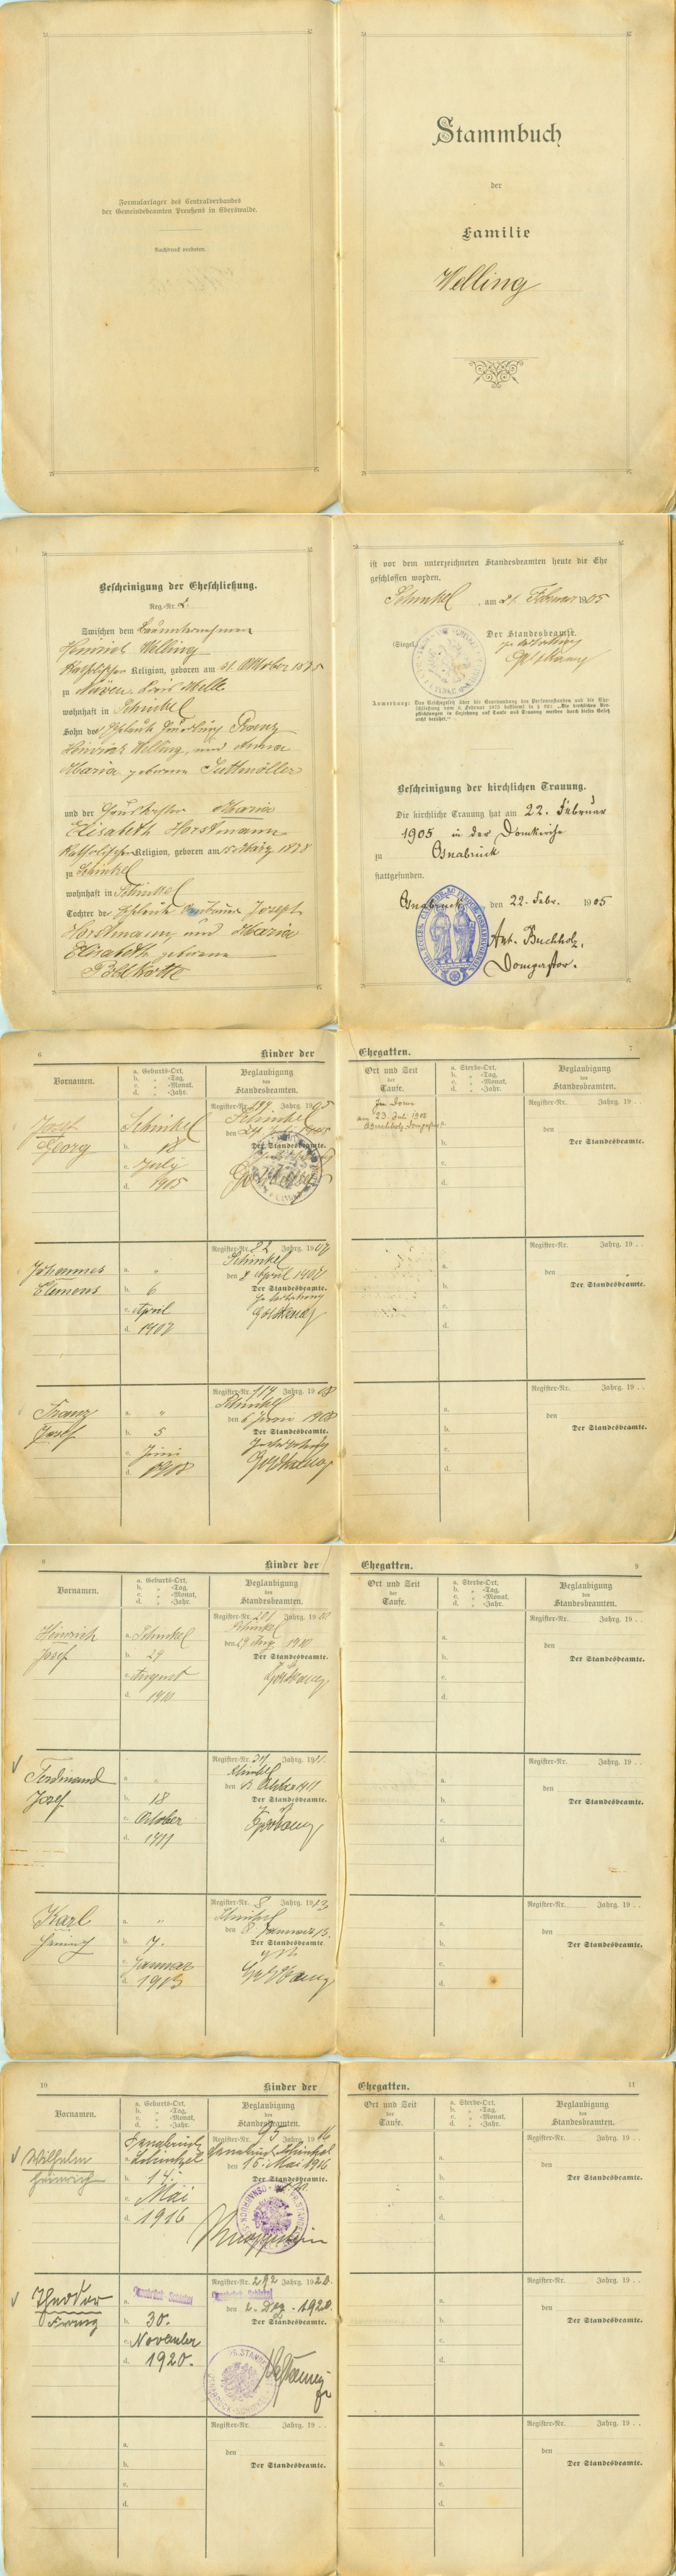 Formularlager des Centralverbandes
der Gemeindebeamten Preußens in Eberswalde.
Nachdruck verboten.
Stammbuch
der
Familie
Welling
Bescheinigung der Eheschließung.
Reg.-Nr. 2.
Zwischen dem Bauunternehmer
Heinrich Welling
katholischer Religion, geboren am 21. Oktober 1875
zu
wohnhaft in Schinkel
Sohn des Franz
Heinrich Welling, und Anna
Maria geborene Suttmöller
und der Haustochter Maria
Elisabeth Horstmann
katholischer Religion, geboren am 15 März 1878
zu Schinkel
wohnhaft in Schinkel
Tochter der Eheleute Joseph
Horstmann und Maria
Elisabeth geborene
Pöhlkotte
ist vor dem unterzeichneten Standesbeamten heute die Ehe
geschlossen worden.
Schinkel, am 21. Februar 1905
Der Standesbeamte.
(Siegel.)
Anmerkung: Das Reichsgesetz über die Beurkundung des Personenstandes und die Ehe-
schließung vom 6. Februar 1875 bestimmt in § 82: „Die kirchlichen Ver-
pflichtungen in Beziehung auf Taufe und Trauung werden durch dieses Gesetz
nicht berührt."
Bescheinigung der kirchlichen Trauung.
Die kirchliche Trauung hat am 22. Februar
1905 in der Domkirche
zu Osnabrück
stattgefunden.
Osnabrück den 22. Febr. 1905
Ant. Buchholz,
Dompastor.
6 Kinder der
Vornamen.
a. Geburts-Ort.
b. „ -Tag.
c. „ -Monat.
d. „ -Jahr.
Beglaubigung
des
Standesbeamten.
Josef
Georg
Schinkel
b. 18
c. July
d. 1905
Register-Nr. 197 Jahrg. 1905
Schinkel
den 21 July 1905
Der Standesbeamte.
Johannes
Clemens
a. „
b. 6
c. April
d. 1907
Register-Nr. 82 Jahrg. 1907
Schinkel
den 8 April 1907
Der Standesbeamte.
Franz
Josef
a. „
b. 5
c. Juni
d. 1908
Register-Nr. 117 Jahrg. 1908
Schinkel
den 6 Juni 1908
Der Standesbeamte.
Ehegatten. 7
Ort und Zeit
der
Taufe.
a. Sterbe-Ort.
b. „ -Tag.
c. „ -Monat.
d. „ -Jahr.
Beglaubigung
des
Standesbeamten.
Im Dom
am 23. Juli 1905
Buchholz Dompastor
a.
b.
c.
d.
Register-Nr. Jahrg. 19 . .
den
Der Standesbeamte.
a.
b.
c.
d.
Register-Nr. Jahrg. 19 . .
den
Der Standesbeamte.
a.
b.
c.
d.
Register-Nr. Jahrg. 19 . .
den
Der Standesbeamte.
8 Kinder der
Vornamen.
a. Geburts-Ort.
b. „ -Tag.
c. „ -Monat.
d. „ -Jahr.
Beglaubigung
des
Standesbeamten.
Heinrich
Josef
a. Schinkel
b. 29
c. August
d. 1910
Register-Nr. 201 Jahrg. 1910
Schinkel
den 29 Aug 1910
Der Standesbeamte.
Ferdinand
Josef
a. „
b. 18
c. Oktober
d. 1911
Register-Nr. Jahrg. 1911.
Schinkel
den Oktober 1911
Der Standesbeamte.
Karl
Heinrich
a. „
b. 7.
c. Januar
d. 1913
Register-Nr. 8 Jahrg. 1913
Schinkel
den 8 Januar 13.
Der Standesbeamte.
Ehegatten. 9
Ort und Zeit
der
Taufe.
a. Sterbe-Ort.
b. „ -Tag.
c. „ -Monat.
d. „ -Jahr.
Beglaubigung
des
Standesbeamten.
a.
b.
c.
d.
Register-Nr. Jahrg. 19 . .
den
Der Standesbeamte.
a.
b.
c.
d.
Register-Nr. Jahrg. 19 . .
den
Der Standesbeamte.
a.
b.
c.
d.
Register-Nr. Jahrg. 19 . .
den
Der Standesbeamte.
10 Kinder der
Vornamen.
a. Geburts-Ort.
b. „ -Tag.
c. „ -Monat.
d. „ -Jahr.
Beglaubigung
des
Standesbeamten.
Wilhelm
Heinrich
Osnabrück
Schinkel
b. 14.
c. Mai
d. 1916
Register-Nr. 95 Jahrg. 1916
Osnabrück Schinkel
den 15. Mai 1916
Der Standesbeamte.
Theodor
Franz
a. Osnabrück-Schinkel
b. 30.
c. November
d. 1920.
Register-Nr. 292 Jahrg. 1920.
Osnabrück-Schinkel
den 2. Dez. 1920.
Der Standesbeamte.
a.
b.
c.
d.
Register-Nr. Jahrg. 19 . .
den
Der Standesbeamte.
Ehegatten. 11
Ort und Zeit
der
Taufe.
a. Sterbe-Ort.
b. „ -Tag.
c. „ -Monat.
d. „ -Jahr.
Beglaubigung
des
Standesbeamten.
a.
b.
c.
d.
Register-Nr. Jahrg. 19 . .
den
Der Standesbeamte.
a.
b.
c.
d.
Register-Nr. Jahrg. 19 . .
den
Der Standesbeamte.
a.
b.
c.
d.
Register-Nr. Jahrg. 19 . .
den
Der Standesbeamte.